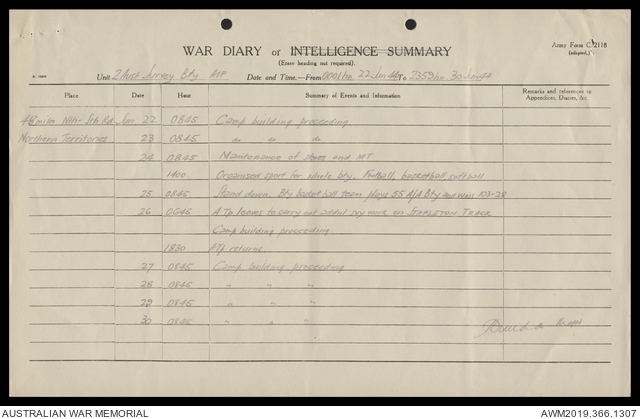 WAR DIARY or INTELLIGENCE SUMMARY
Army Form C.2118
(adapted.)
(Erase heading not required).
Unit 2 Aust Survey Bty AIF Date and Time—From 0001 hr 22 Jan 44 To 2359 hr 30 Jan 44
Place Date Hour Summary of Events and Information Remarks and references to Appendices, Diaries, &c.
48 miles Nth-Sth Rd Jan 22 0845 Camp building proceeding
Northern Territories 23 0845 do do do
24 0845 Maintenance of stores and MT
1400 Organised sport for whole bty. Football, basketball, softball
25 0845 Stand down. Bty basketball team plays 55 A/A Bty and wins 103-28
26 0645 A Tp leaves to carry out addnl svy work on STAPLETON TRACK
Camp building proceeding
1830 A Tp returns
27 0845 Camp building proceeding
28 0845 " " "
29 0845 " " "
30 0845 " " "
AUSTRALIAN WAR MEMORIAL
AWM2019.366.1307